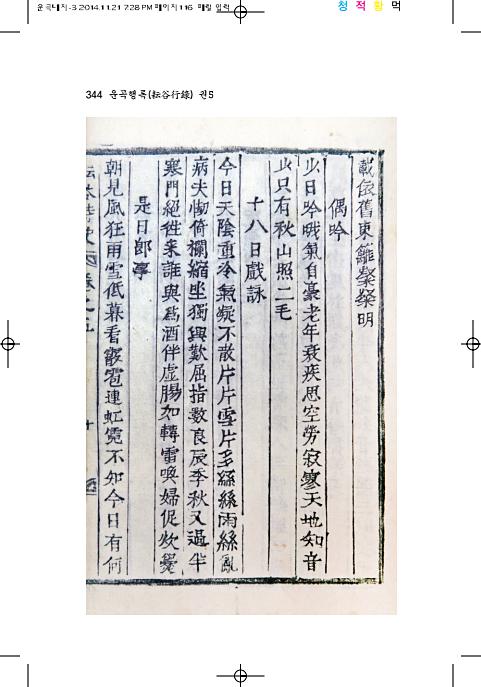 운곡내지-3 2014.11.21 7:28 PM 페이지116 매킬 일럭
청 적 황 먹
344 운곡행록(耘谷行錄) 권5
載依舊東籬粲粲明
偶吟
少日吟哦氣自豪老年衰疾思空勞寂寥天地知音
少只有秋山照二毛
十八日戲詠
今日天陰重冷氣凝不散片片雪片多絲絲雨絲亂
病夫怯倚欄縮坐獨興歎屈指數良辰季秋又過半
寒門絕往來誰與爲酒伴虛腸如轉雷喚婦促炊爨
是日郎事
朝見風狂雨雪低暮看霰雹連虹霓不知今日有何
卷之五 十